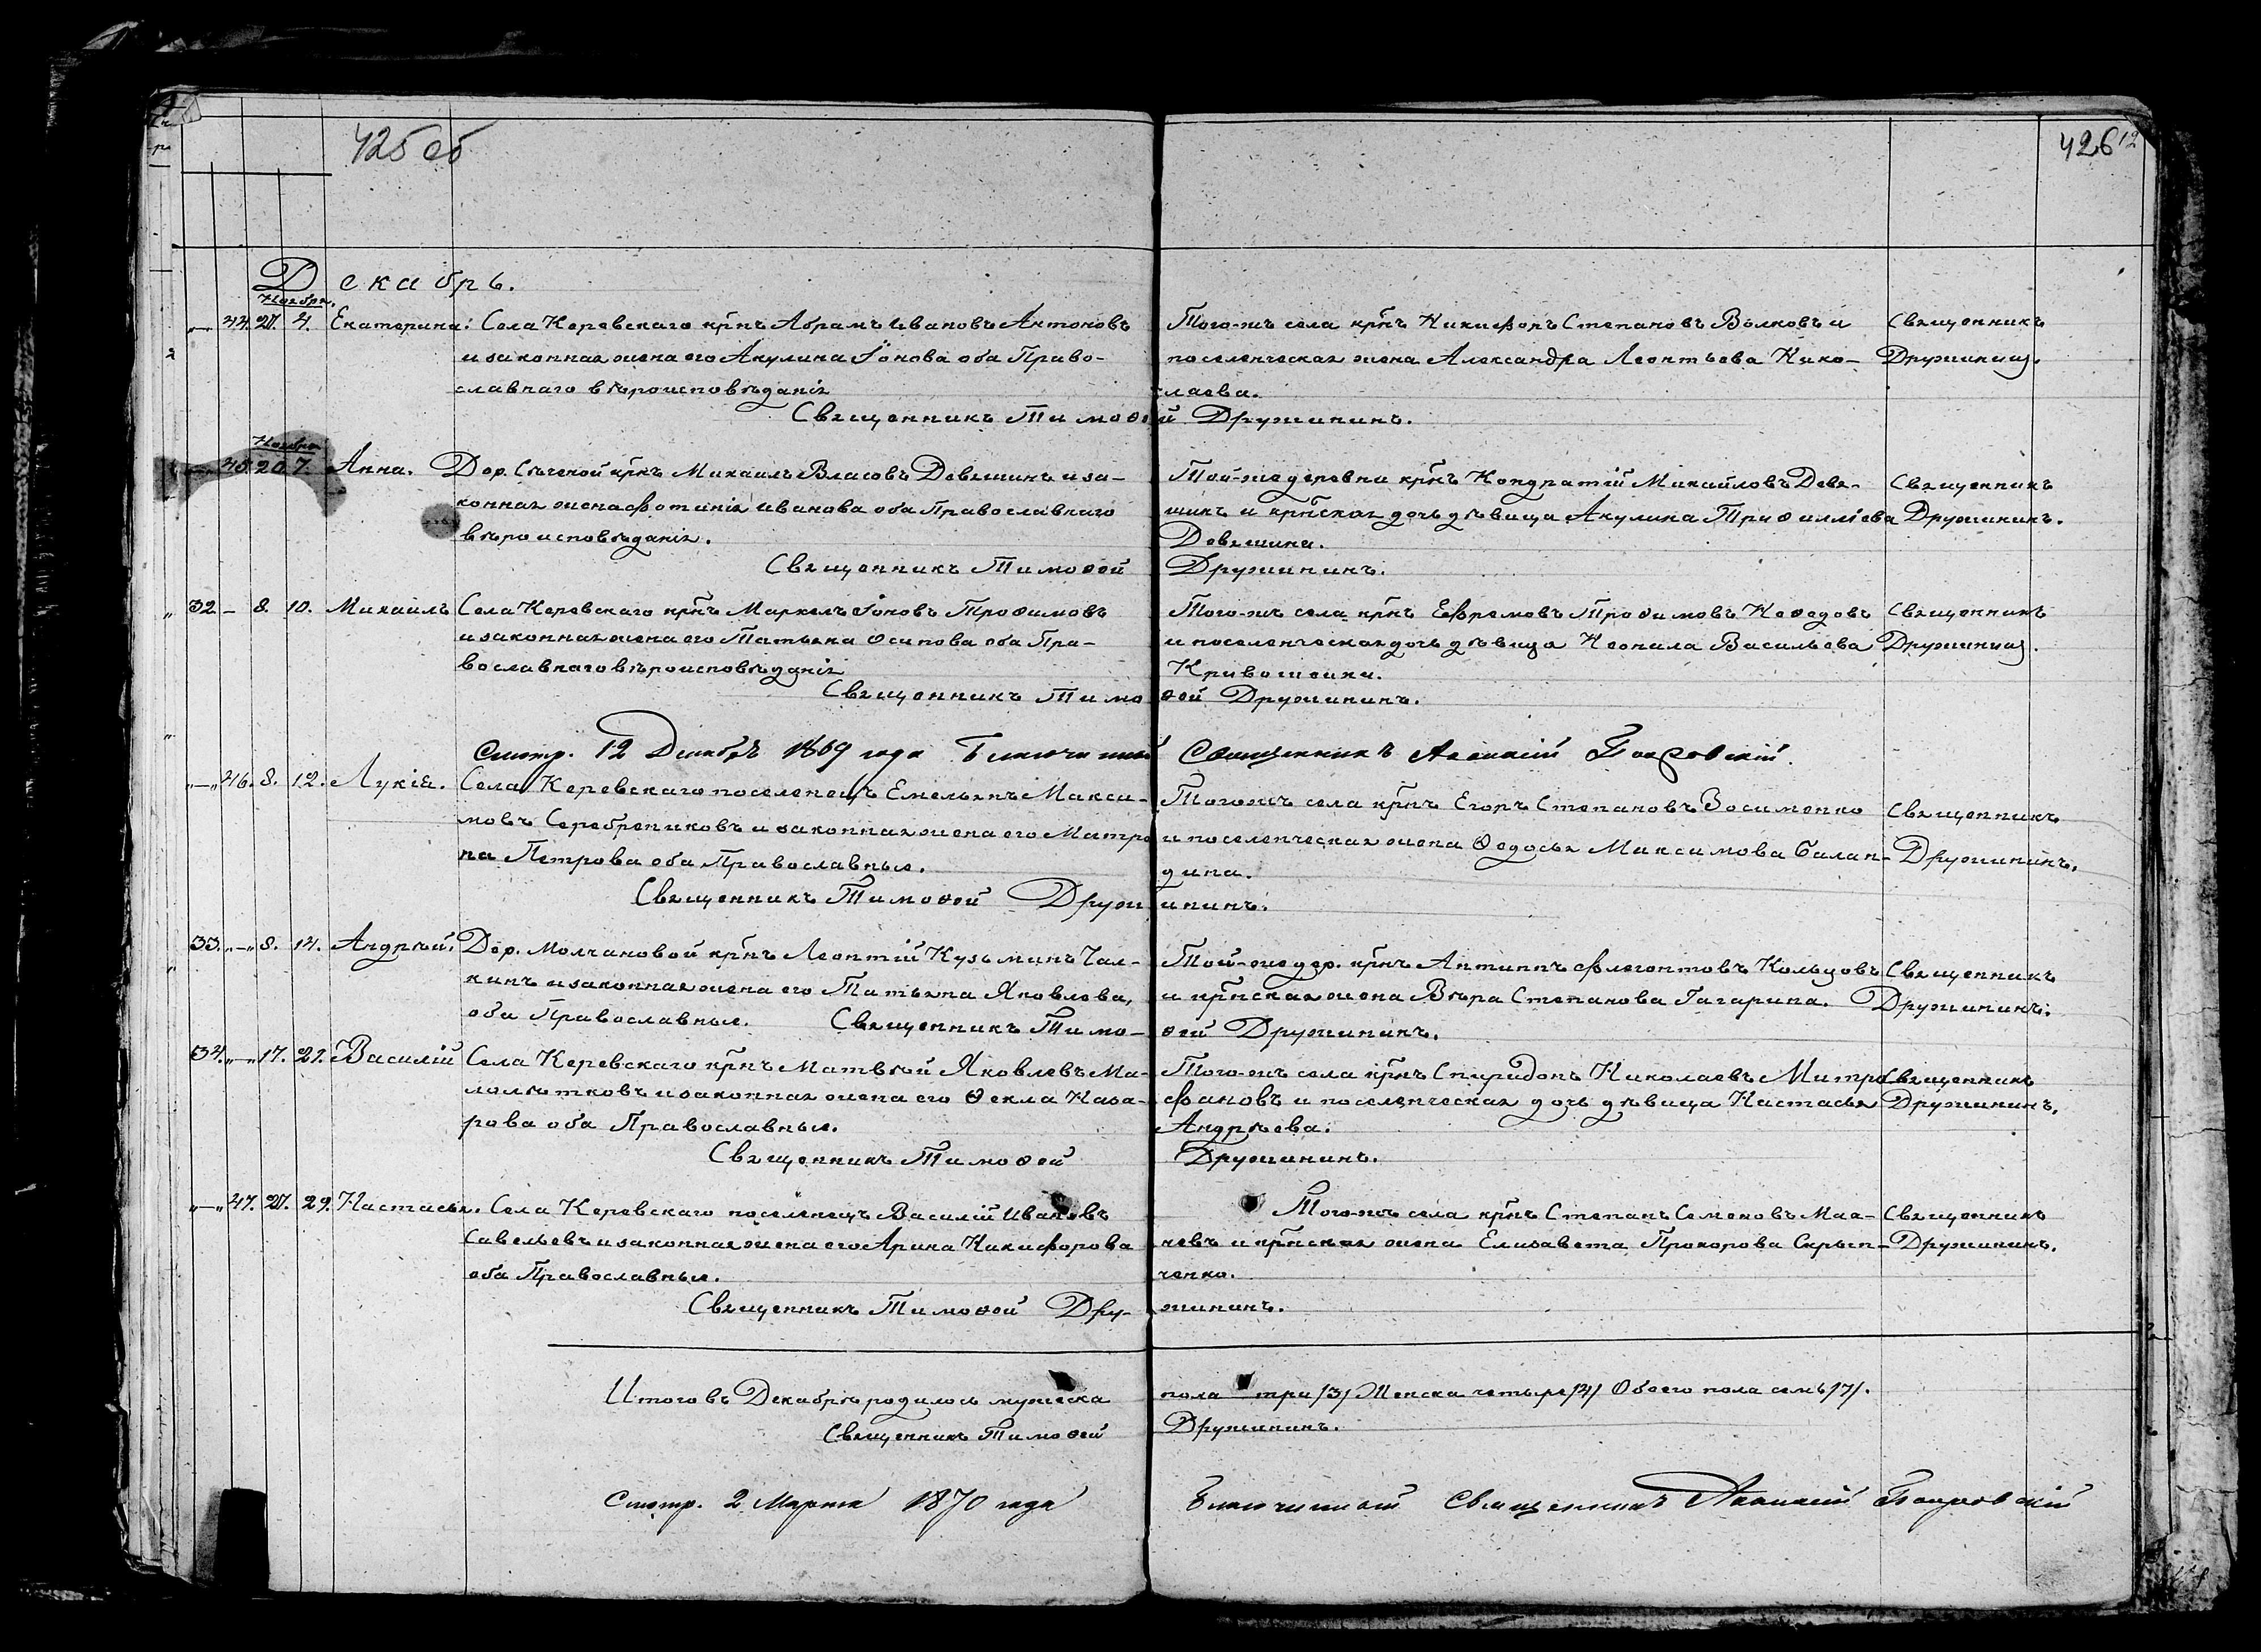 425 об
426
12
Декабрь.
Ноября.
„—„ 44. 27. 4. Екатерина: Села Керевскаго крнъ Абрамъ Ивановъ Антоновъ
и законная жена его Акулина Іонова оба Право-
славнаго вѣроисповѣданія
Того-жъ села крнъ Никифоръ Степановъ Волковъ и
поселенческая жена Александра Леонтьева Нико-
лаева.
Священникъ
Дружининъ.
Священникъ Тимоѳей Дружининъ.
Ноября
„—„ 45. 20. 7. Анна. Дер. Сѣченой крнъ Михаилъ Власовъ Девяшинъ и за-
конная жена Фотинія Иванова оба Православнаго
вѣроисповѣданія.
Той-же деревни крнъ Кондратій Михайловъ Девя-
шинъ и крнская дочь дѣвица Акулина Трифилліева
Девяшина.
Священникъ
Дружининъ.
Священникъ Тимоѳей Дружининъ.
32 — 8. 10. Михаилъ Села Керевскаго крнъ Маркелъ Іоновъ Трофимовъ
и законная жена его Татьяна Осипова оба Пра-
вославнаго вѣроисповѣданія
Того-жъ села крнъ Ефремовъ Трофимовъ Неѳедовъ
и поселенческая дочь дѣвица Неонила Васильева
Кривошеина.
Священникъ
Дружининъ.
Священникъ Тимоѳей Дружининъ.
Смотр. 12 Декабря 1869 года Благочинный Священникъ Аѳанасій Покровскій.
„—„ 46. 8. 12. Лукія. Села Керевскаго поселенецъ Емельянъ Макси-
мовъ Серебрениковъ и законная жена его Матро
на Петрова оба Православные.
Тогожъ села крнъ Егоръ Степановъ Зосименко
и поселенческая жена Ѳедосья Максимова Балан-
дина.
Священникъ
Дружининъ.
Священникъ Тимоѳей Дружининъ.
33. „—„ 8. 14. Андрѣй. Дер. Молчановой крнъ Леонтій Кузьминъ Чал-
кинъ и законная жена его Татьяна Яковлева,
оба Православные.
Той-же дер. крнъ Антипъ Флегонтовъ Кольцовъ
и крнская жена Вѣра Степанова Гагарина.
Священникъ
Дружининъ.
Священникъ Тимо-ѳей Дружининъ.
34. „—„ 17. 21. Василій Села Керевскаго крнъ Матвѣй Яковлевъ Ма-
лолѣтковъ и законная жена его Ѳекла Наза-
рова оба Православные.
Того-жъ села крнъ Спиридонъ Николаевъ Митро
фановъ и поселенческая дочь дѣвица Настасья
Андрѣева.
Священникъ
Дружининъ.
Священникъ Тимоѳей Дружининъ.
„—„ 47. 27. 29. Настасья. Села Керевскаго поселенецъ Василій Ивановъ
Савельевъ и законная жена его Арина Никифорова
оба Православные.
Того-жъ села крнъ Степанъ Семеновъ
и крнская жена Елизавета Прохорова Скрып-
ченко.
Священникъ
Дружининъ.
Священникъ Тимоѳей Дру-жининъ.
Итого въ Декабрѣ родилось мужеска пола три /3/ Женска четыре /4/ Обоего пола семь /7/.
Священникъ Тимоѳей Дружининъ.
Смотр. 2 Марта 1870 года Благочинный Священникъ Аѳанасій Покровскій